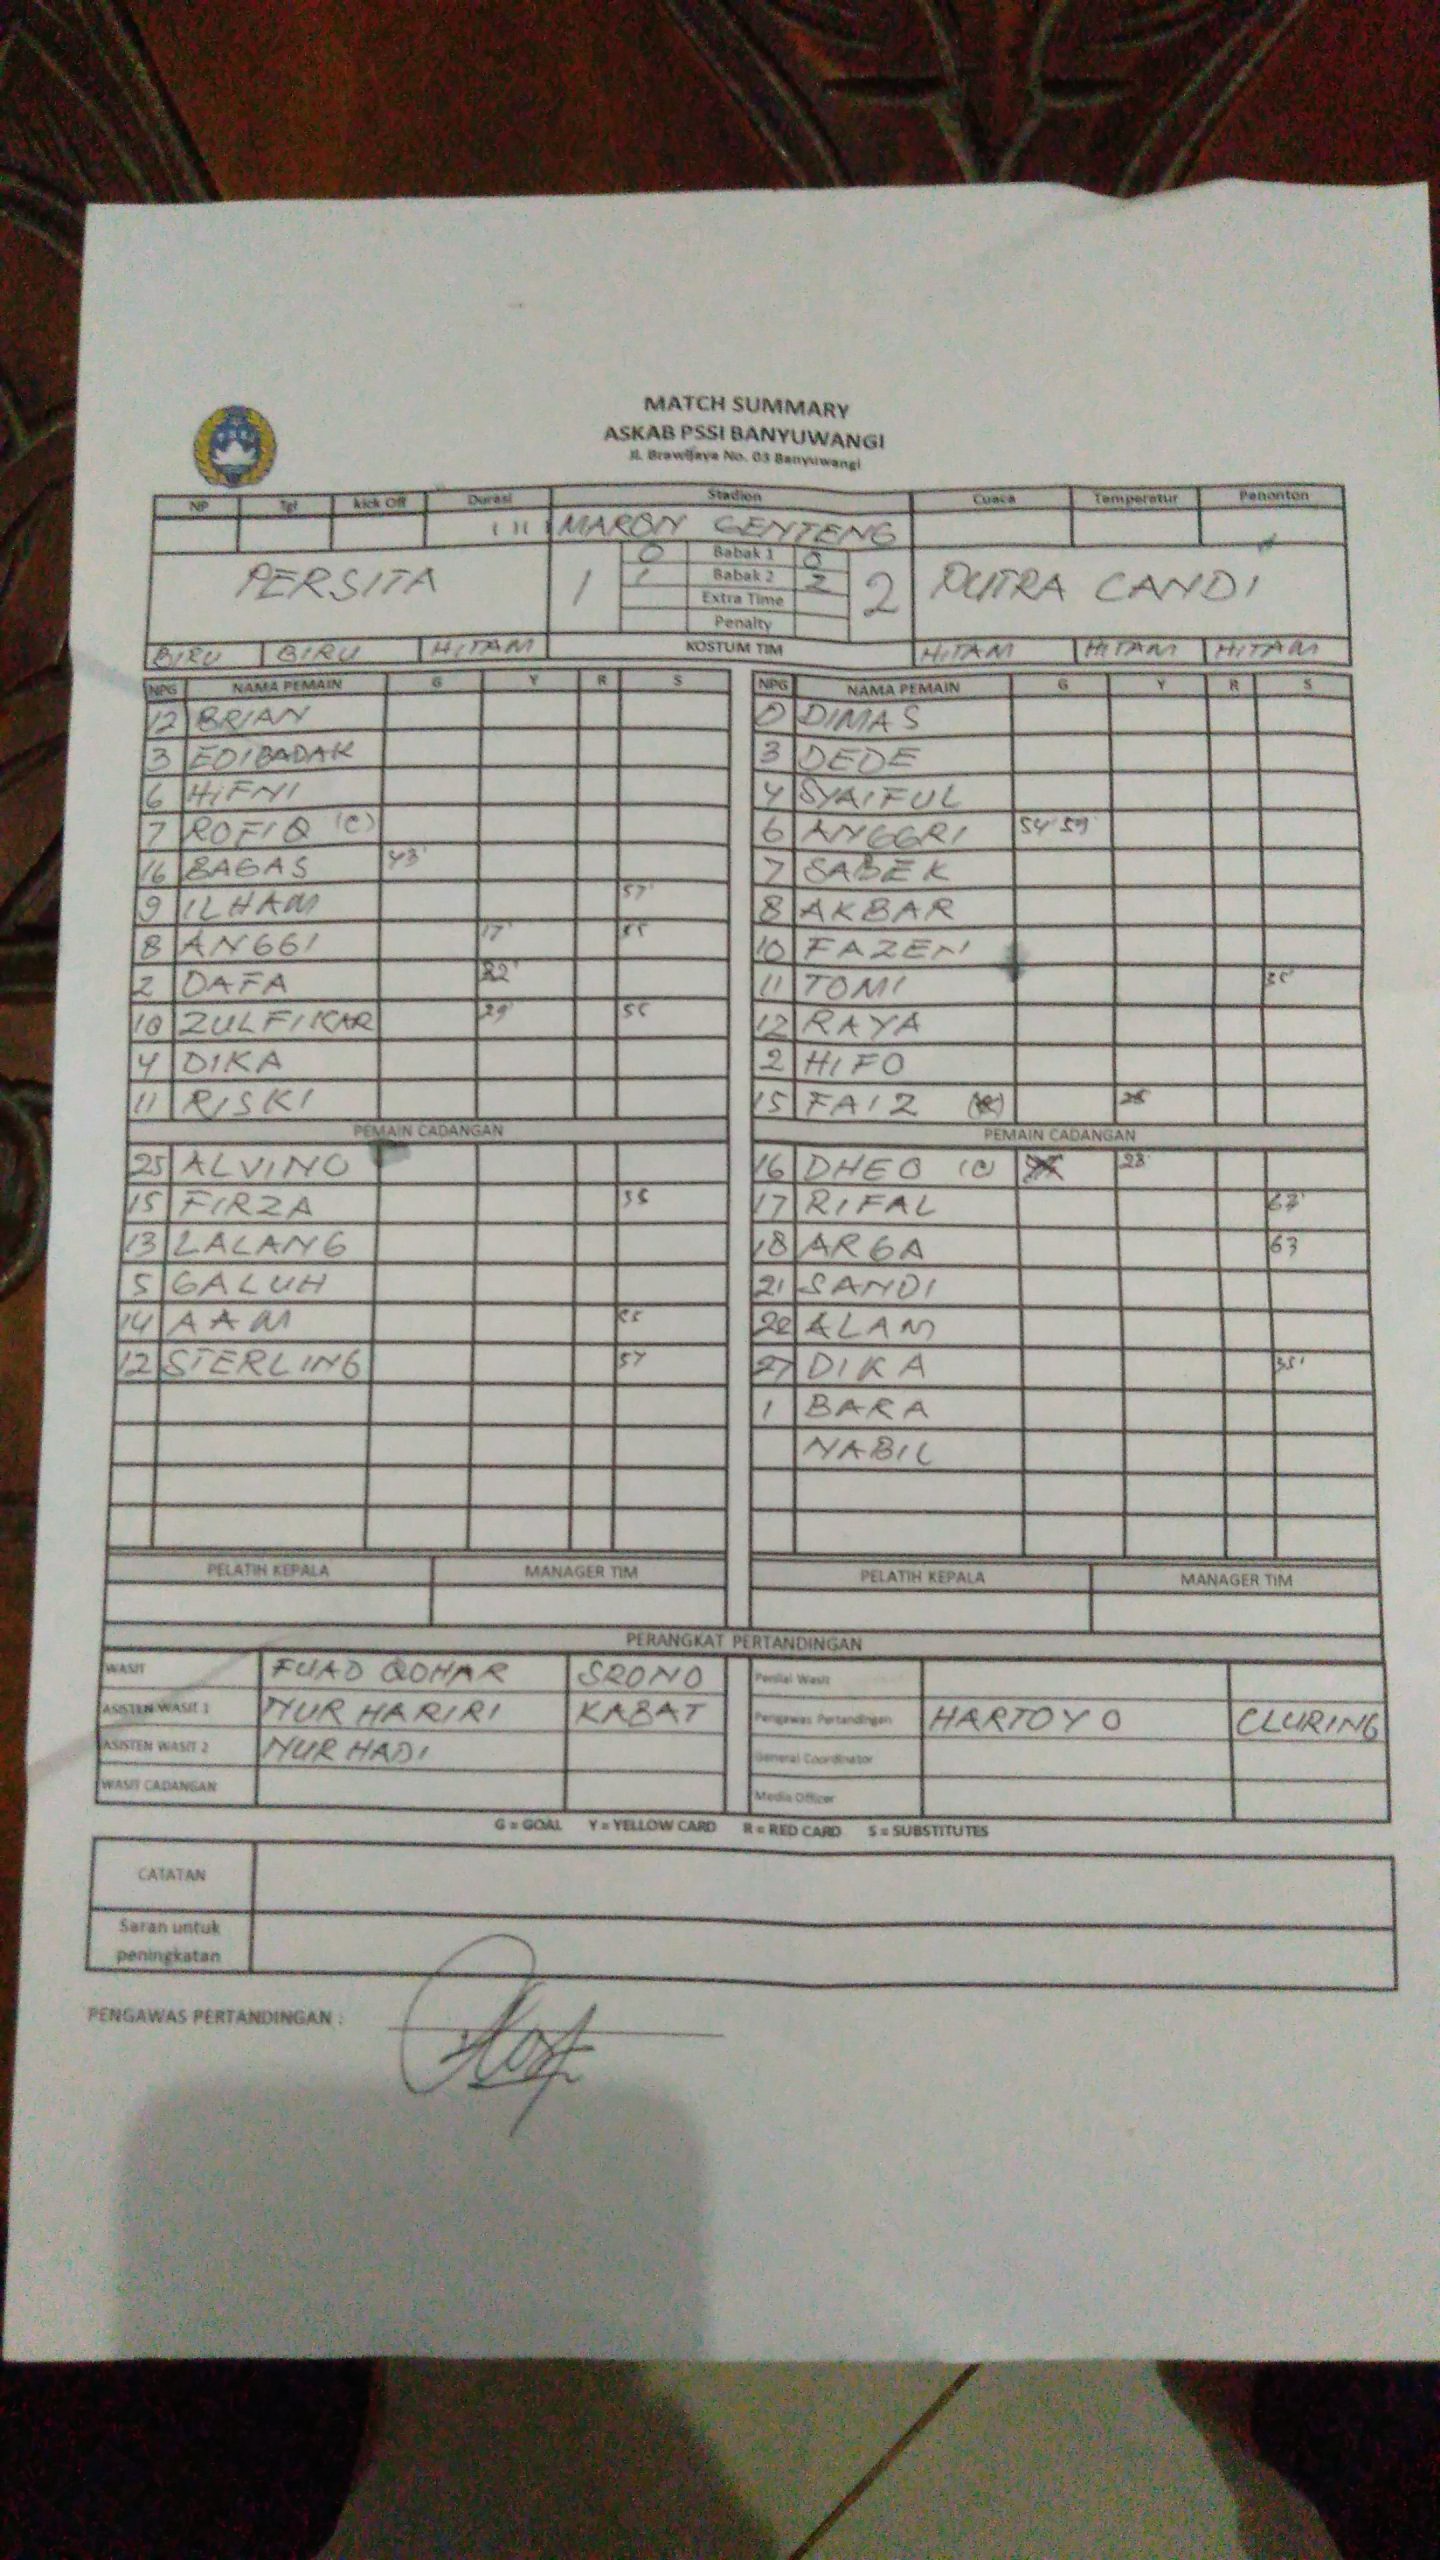 MATCH SUMMARY
ASKAB PSSI BANYUWANGI
Jl. Brawijaya No. 03 Banyuwangi
NP Tgl kick Off Durasi Stadion Cuaca Temperatur Penonton
MARON GENTENG
PERSITA 1 0 Babak 1 0 2 PUTRA CANDI
1 Babak 2 2
Extra Time
Penalty
BIRU BIRU HITAM KOSTUM TIM HITAM HITAM HITAM
NPG NAMA PEMAIN G Y R S NPG NAMA PEMAIN G Y R S
12 BRIAN 0 DIMAS
3 EDIBADAK 3 DEDE
6 HIFNI 4 SYAIFUL
7 ROFIQ (C) 6 ANGGRI 54' 59'
16 BAGAS 43' 7 SABEK
9 ILHAM 57' 8 AKBAR
8 ANGGI 17' 10 FAZEN
2 DAFA 22' 11 TOMI 35'
10 ZULFIKAR 29' 12 RAYA
4 DIKA 2 HIFO
11 RISKI 15 FAIZ
PEMAIN CADANGAN PEMAIN CADANGAN
25 ALVINO 16 DHEO (C) 28'
15 FIRZA 17 RIFAL 63'
13 LALANG 18 ARGA 63
5 GALUH 21 SANDI
14 AAM ALAM
12 STERLING 57 27 DIKA 35'
1 BARA
NABIL
PELATIH KEPALA MANAGER TIM PELATIH KEPALA MANAGER TIM
PERANGKAT PERTANDINGAN
WASIT FUAD QOHAR SRONO Penilai Wasit
ASISTEN WASIT 1 NUR HARIRI KABAT Pengawas Pertandingan HARTOYO CLURING
ASISTEN WASIT 2 NUR HADI General Coordinator
WASIT CADANGAN Media Officer
G = GOAL Y = YELLOW CARD R = RED CARD S = SUBSTITUTES
CATATAN
Saran untuk
peningkatan
PENGAWAS PERTANDINGAN :